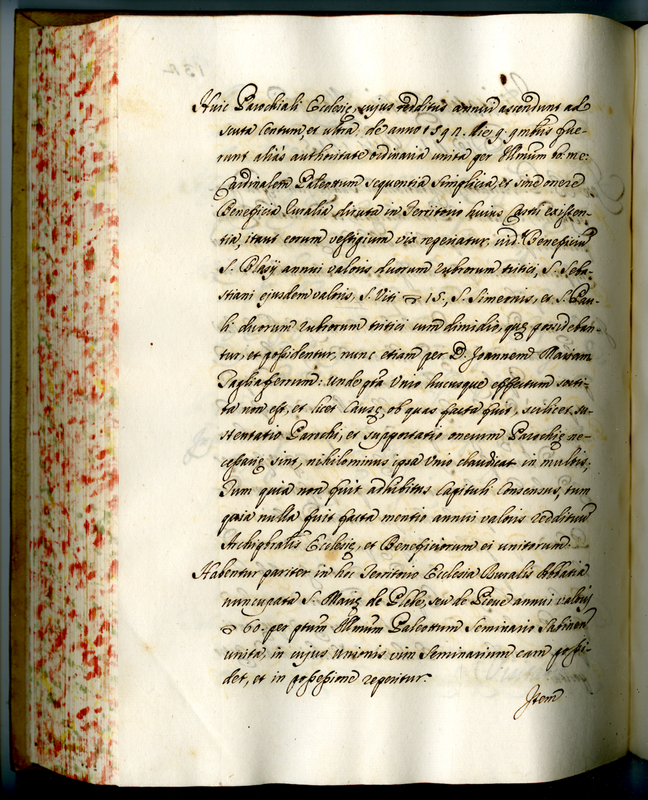 Huic Parochiali Ecclesię, cujus redditus annui ascendunt ad
scuta centum, et ultra, de anno 1592. die 9. 9mbris fue-
runt aliàs authoritate ordinaria unita per Illmum bo: me:
Cardinalem Paleottum sequentia simplicia, et sine onere
Beneficia Ruralia diruta in Territorio huius Castri existen-
tia, itaut eorum vestigium vix reperiatur, vid.t Beneficiu
S. Blasij annui valoris duorum rubiorum tritici, S. Seba-
stiani ejusdem valoris, S. Viti 15, S. Simeonis, et S. Pau-
li duorum rubiorum tritici cum dimidio, quę possideban-
tur, et possidentur, nunc etiam per D. Joannem Mariam
Tagliaferrum: unde pta Unio hucusque effectum sorti-
ta non est, et licet Causę, ob quas facta fuit, scilicet su-
stentatio Parochi, et supportatio onerum Parochię ne-
cessarię sint, nihilominus ipsa Unio claudicat in multis;
Tum quia non fuit adhibitus Capituli Consensus, tum
quia nulla fuit facta mentio annui valoris reddituu
Archipbralis Ecclesię, et Beneficiorum ei unitorum.
Habentur pariter in hoc Territorio Ecclesia Ruralis Abbatia
nuncupata S. Marię de Plebe, seu de Pieve annui valoris
60. per ptum Illmum Paleottum Seminario Sabinen
unita, in cujus unionis vim Seminarium eam possi-
det, et in possessione reperitur.
Item